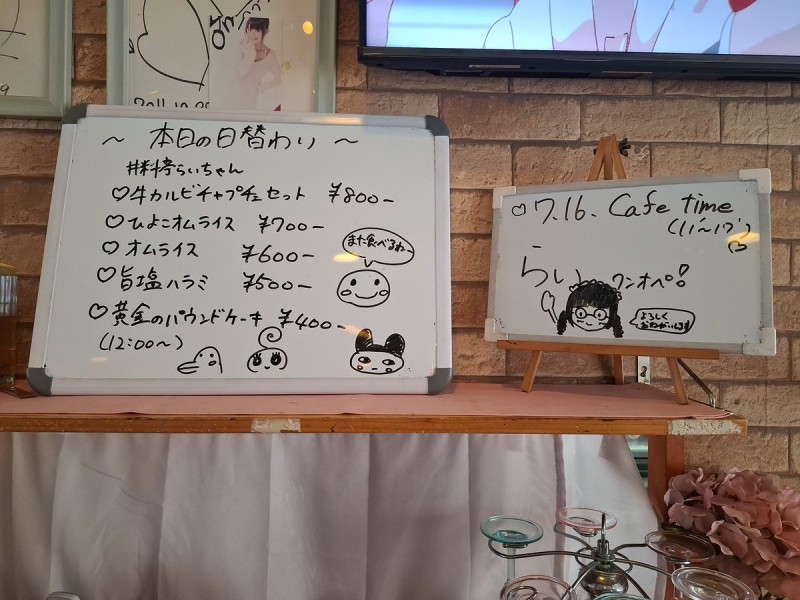 ～ 本日の日替わり ～
#料亭らいちゃん
♡牛カルビチャプチェセット ¥800-
♡ひよこオムライス ¥700-
♡オムライス ¥600-
♡旨塩ハラミ ¥500-
♡黄金のパウンドケーキ ¥400-
(12:00～)
また食べるわ～
♡7.16. Cafe time
(11'～17')
らい ワンオペ!
よろしく
おねがいします